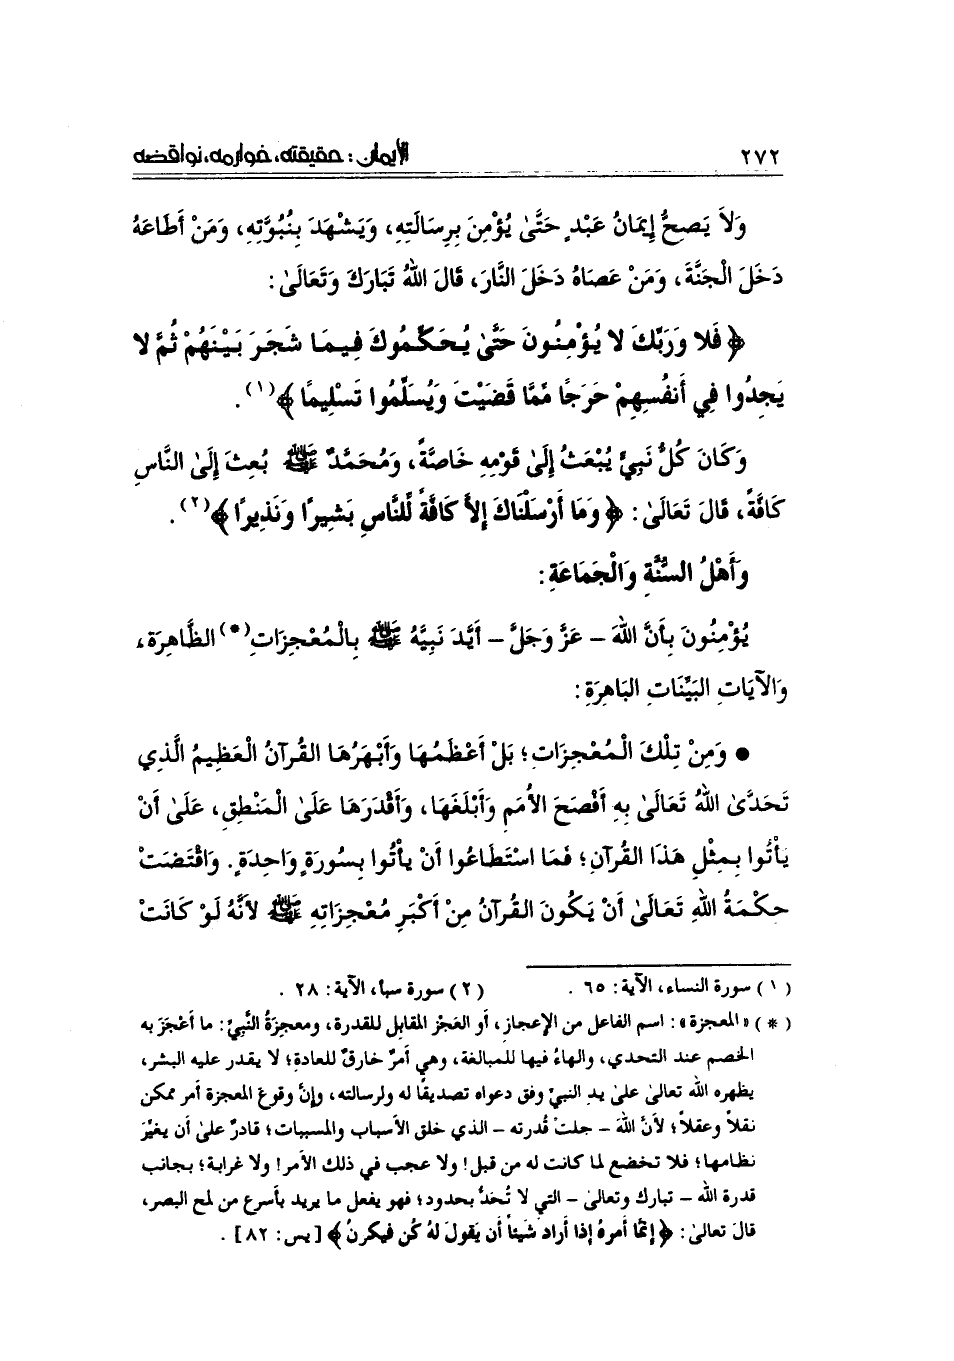 ٢٧٢ الإيمان: حقيقته، خوارمه، نواقضه
وَلاَ يَصِحُّ إِيمَانُ عَبْدٍ حَتَّىٰ يُؤْمِنَ بِرِسَالَتِهِ، وَيَشْهَدَ بِنُبُوَّتِهِ، وَمَنْ أَطَاعَهُ
دَخَلَ الْجَنَّةَ، وَمَنْ عَصَاهُ دَخَلَ النَّارَ، قَالَ اللهُ تَبَارَكَ وَتَعَالَىٰ:
﴿ فَلا وَرَبِّكَ لا يُؤْمِنُونَ حَتَّىٰ يُحَكِّمُوكَ فِيمَا شَجَرَ بَيْنَهُمْ ثُمَّ لا
يَجِدُوا فِي أَنفُسِهِمْ حَرَجًا مِّمَّا قَضَيْتَ وَيُسَلِّمُوا تَسْلِيمًا ﴾(١) .
وَكَانَ كُلُّ نَبِيٍّ يُبْعَثُ إِلَىٰ قَوْمِهِ خَاصَّةً، وَمُحَمَّدٌ ﷺ بُعِثَ إِلَىٰ النَّاسِ
كَافَّةً، قَالَ تَعَالَىٰ: ﴿ وَمَا أَرْسَلْنَاكَ إِلاَّ كَافَّةً لِّلنَّاسِ بَشِيرًا وَنَذِيرًا ﴾(٢).
وَأَهْلُ السُّنَّةِ وَالْجَمَاعَةِ:
يُؤْمِنُونَ بِأَنَّ اللهَ – عَزَّ وَجَلَّ – أَيَّدَ نَبِيَّهُ ﷺ بِالْمُعْجِزَاتِ(*) الظَّاهِرَةِ،
وَالآيَاتِ البَيِّنَاتِ البَاهِرَةِ:
● وَمِنْ تِلْكَ الْمُعْجِزَاتِ؛ بَلْ أَعْظَمُهَا وَأَبْهَرُهَا القُرآنُ الْعَظِيمُ الَّذِي
تَحَدَّىٰ اللهُ تَعَالَىٰ بِهِ أَفْصَحَ الأُمَمِ وَأَبْلَغَهَا، وَأَقْدَرَهَا عَلَىٰ الْمَنْطِقِ، عَلَىٰ أَنْ
يَأْتُوا بِمِثْلِ هَذَا القُرآنِ؛ فَمَا اسْتَطَاعُوا أَنْ يَأْتُوا بِسُورَةٍ وَاحِدَةٍ. وَاقْتَضَتْ
حِكْمَةُ اللهِ تَعَالَىٰ أَنْ يَكُونَ القُرآنُ مِنْ أَكْبَرِ مُعْجِزَاتِهِ ﷺ لأَنَّهُ لَوْ كَانَتْ
(١) سورة النساء، الآية: ٦٥ . (٢) سورة سبأ، الآية: ٢٨ .
(*) «المعجزة»: اسم الفاعل من الإعجاز، أو العَجْز المقابل للقدرة، ومعجزَةُ النَّبيِّ: ما أعْجَزَ به
الخصم عند التحدي، والهاءُ فيها للمبالغة، وهي أمرٌ خارقٌ للعادة؛ لا يقدر عليه البشر،
يظهره الله تعالىٰ علىٰ يد النبيّ وفق دعواه تصديقًا له ولرسالته، وإنَّ وقوعَ المعجزة أمر ممكن
نقلاً وعقلاً؛ لأنَّ اللهَ – جلت قُدرته – الذي خلق الأسباب والمسببات؛ قادرٌ علىٰ أن يغيِّرَ
نظامها؛ فلا تخضع لما كانت له من قبل! ولا عجب في ذلك الأمر! ولا غرابة؛ بجانب
قدرة الله – تبارك وتعالىٰ – التي لا تُحَدُّ بحدود؛ فهو يفعل ما يريد بأسرع من لمح البصر،
قالَ تعالىٰ: ﴿ إنَّما أمرهُ إذا أراد شيئاً أن يَقولَ لهُ كُن فيكونُ ﴾ [يس: ٨٢] .